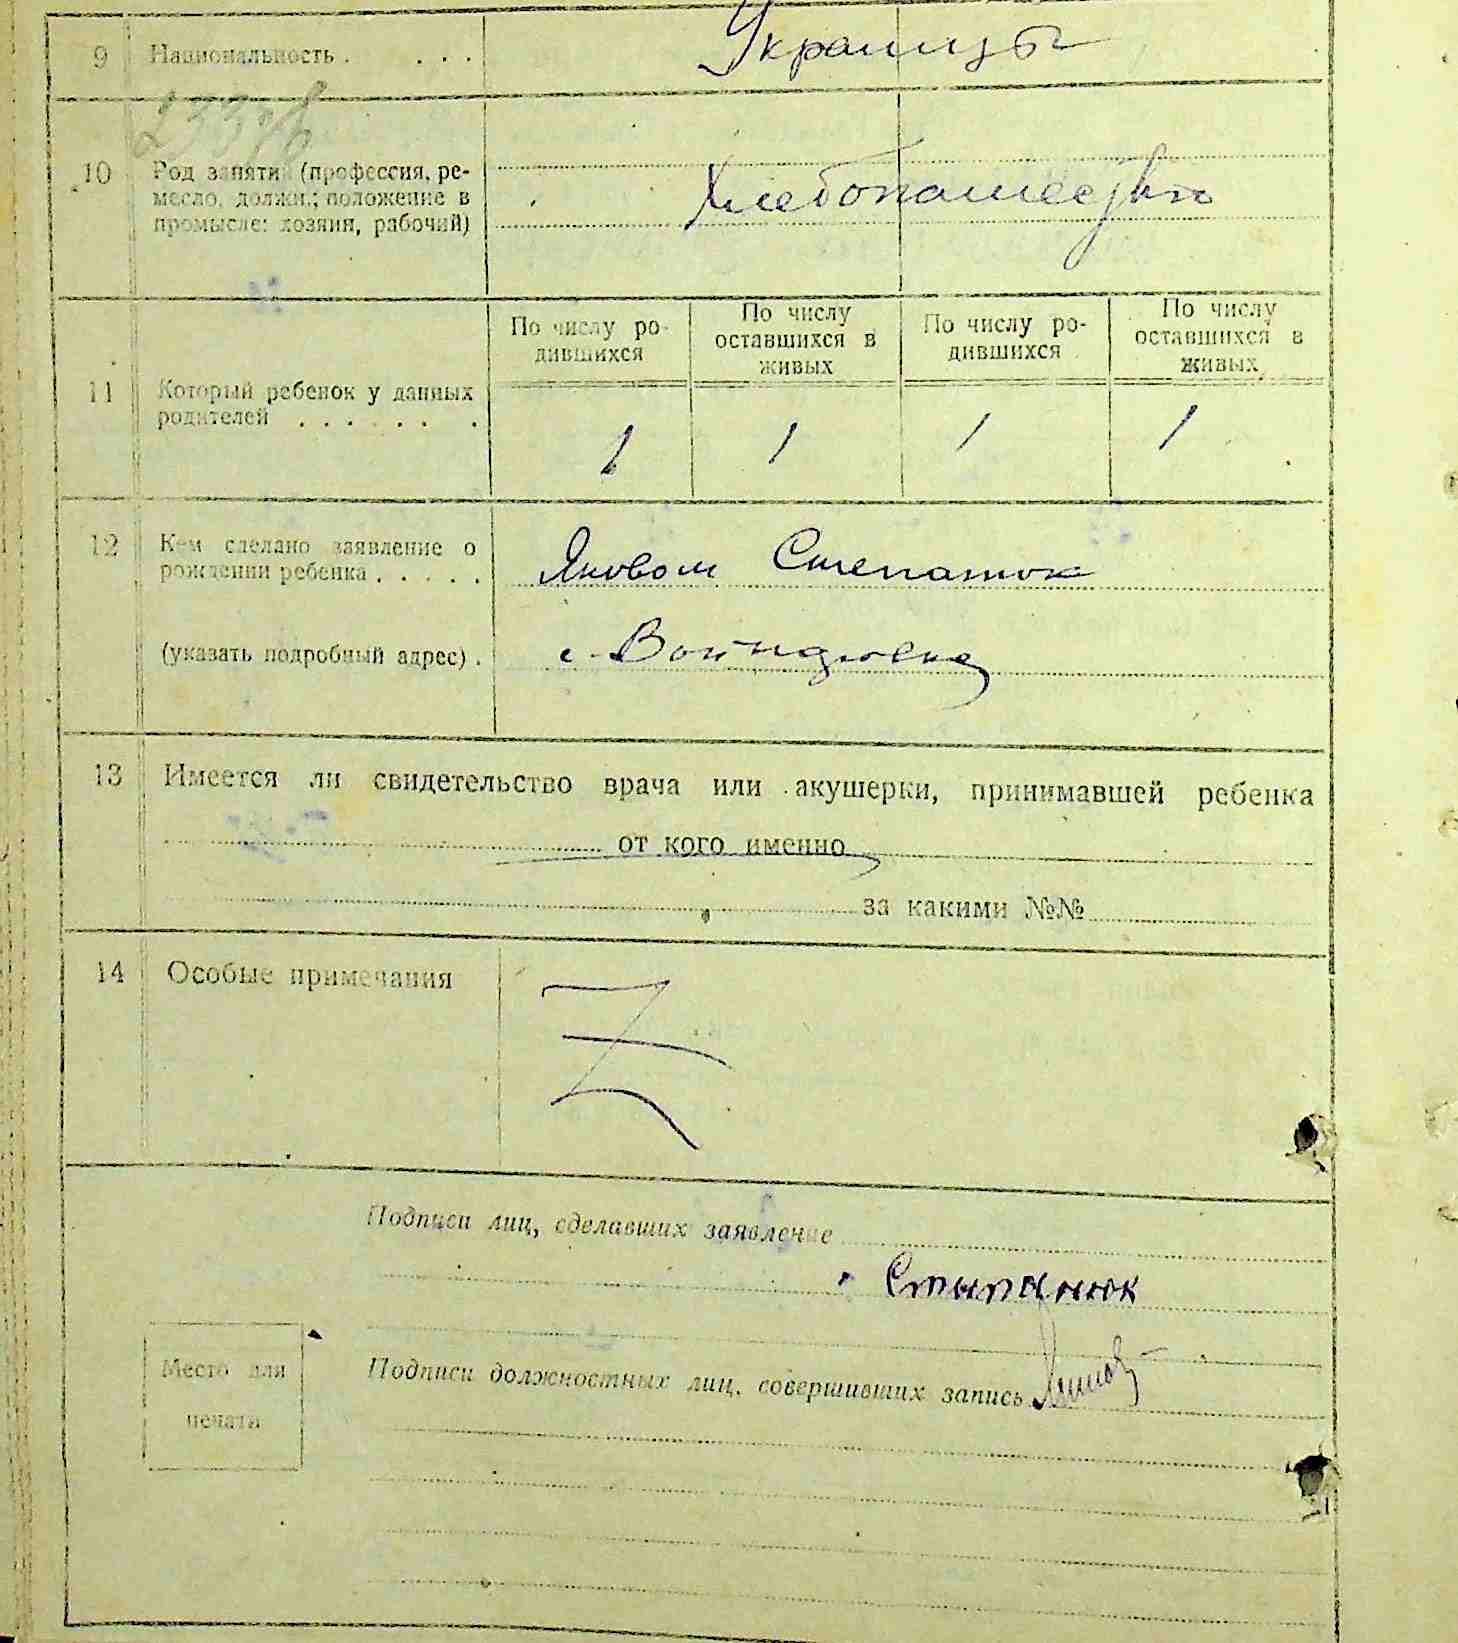 9 Национальность . . . . Украинцы
10 Род занятий (профессия, ре-
месло, должн.; положение в
промысле: хозяин, рабочий)
Хлебопашество
По числу ро-
дившихся
По числу
оставшихся в
живых
По числу ро-
дившихся
По числу
оставшихся в
живых
11 Который ребенок у данных
родителей . . . . . . .
1 1 1 1
12 Кем сделано заявление о
рождении ребенка . . . . .
Яковом Степанюк
(указать подробный адрес) .
с.
13 Имеется ли свидетельство врача или акушерки, принимавшей ребенка
от кого именно
за какими №№
14 Особые примечания
Подписи лиц, сделавших заявление
Стыпанюк
Место для
печати
Подписи должностных лиц, совершивших запись